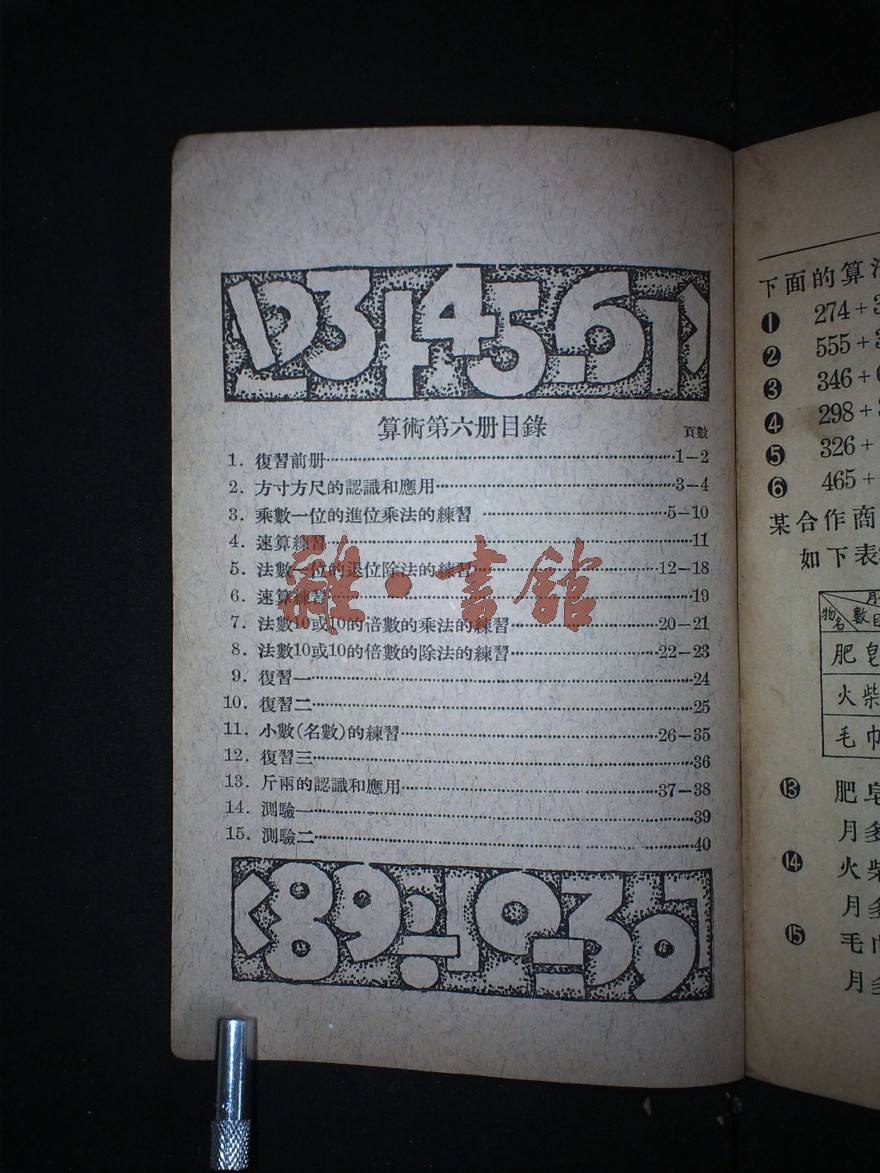 算術第六册目錄
頁數
1. 復習前册 1－2
2. 方寸方尺的認識和應用 3－4
3. 乘數一位的進位乘法的練習 5－10
4. 速算練習 11
5. 法數一位的退位除法的練習 12－18
6. 速算練習 19
7. 法數10或10的倍數的乘法的練習 20－21
8. 法數10或10的倍數的除法的練習 22－23
9. 復習一 24
10. 復習二 25
11. 小數(名數)的練習 26－35
12. 復習三 36
13. 斤兩的認識和應用 37－38
14. 測驗一 39
15. 測驗二 40
雜·書館
下面的算
❶ 274+
❷ 555+
❸ 346+
❹ 298+
❺ 326+
❻ 465+
某合作商
如下表
物名 數
肥皂
火柴
毛巾
⓭ 肥皂
月多
⓮ 火柴
月多
⓯ 毛巾
月多